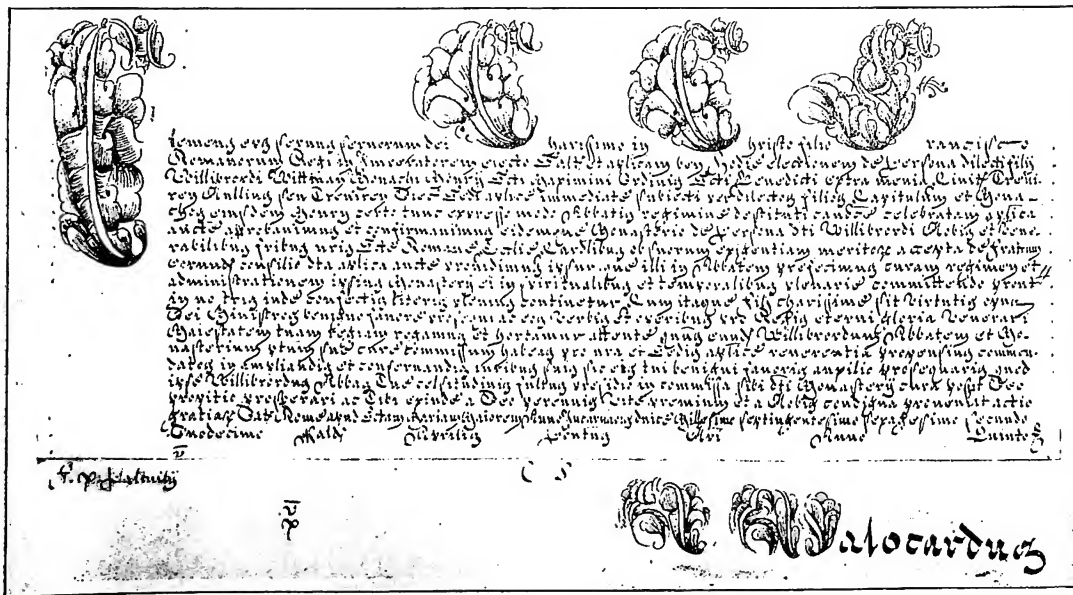 Clemens eps servus servorum dei Charissimo in Christo filio Francisco
Romanorum Regi in Imperatorem electo Saltm et aplicam ben Hodie electionem de persona dilecti filij
Willibrordi Wittman Monachi Monrij Scti Maximini Ordinis Scti Benedicti extra menia Civitt Trevi-
ren Nullius seu Treviren Dioc Sedi aplice immediate subiecti per dilectos filios Capitulum et Mona-
chos eiusdem Monrij certo tunc expresso modo Abbatis regimine destituti canonce celebratam aplica
aucte approbavimus et confirmavimus eidemque Monasterio de persona dti Willibrordi Nobis et Vene-
rabilibus fribus nris Scte Romane Ecclie Cardlibus ob suorum exigentiam meritor accepta de fratrum
eorund consilio dta aplica aucte providimus ipsumque illi in Abbatem prefecimus curam regimen et
administrationem ipsius Monasterij ei in spiritualibus et temporalibus plenarie committendo prout
in nostris inde confectis literis plenius continetur Cum itaque fili charissime sit virtutis opus
Dei Ministros benigno favore prosequi ac eos verbis et operibus pro Regis eterni gloria venerari
Maiestatem tuam regiam rogamus et hortamur attente quatus eund Willibrordum Abbatem et Mo-
nasterium prtum sue cure commissum habens pro nra et Sedis aplice reverentia propensius commen-
datos in ampliandis et conservandis iuribus suis sic eos tui benigni favoris auxilio prosequaris quod
ipse Willibrordus Abbas Tue celsitudinis fultus presidio in commissa sibi dti Monasterij cura possit Deo
propitio prosperari ac Tibi exinde a Deo perennis vite premium et a Nobis condigna proveniat actio
gratiar Dat Rome apud Sctam Mariam Maiorem Anno Incarnaois dnice Millesimo septingentesimo sexagesimo secundo
Duodecimo Kald Aprilis Pontus Nri Anno Quinto